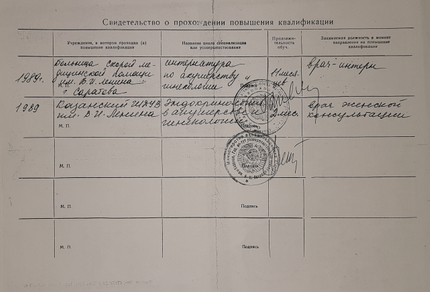 Свидетельство о прохождении повышения квалификации
Учреждение, в котором проходил (а) повышение квалификации
Продолжительность обуч.
Занимаемая должность в момент направления на повышение квалификации
1989г.
Больница скорой медицинской помощи
им. В.И. Ленина
г. Саратова
интернатура
по акушерству и
гинекологии
11 мес.
врач-интерн
1989
Казанский ГИДУВ
им. В.И. Ленина
Эндокринология
в акушерстве и
гинекологии
2 мес.
врач женской
консультации
М. П.
М. П.
М. П.
Подпись
М. П.
Подпись